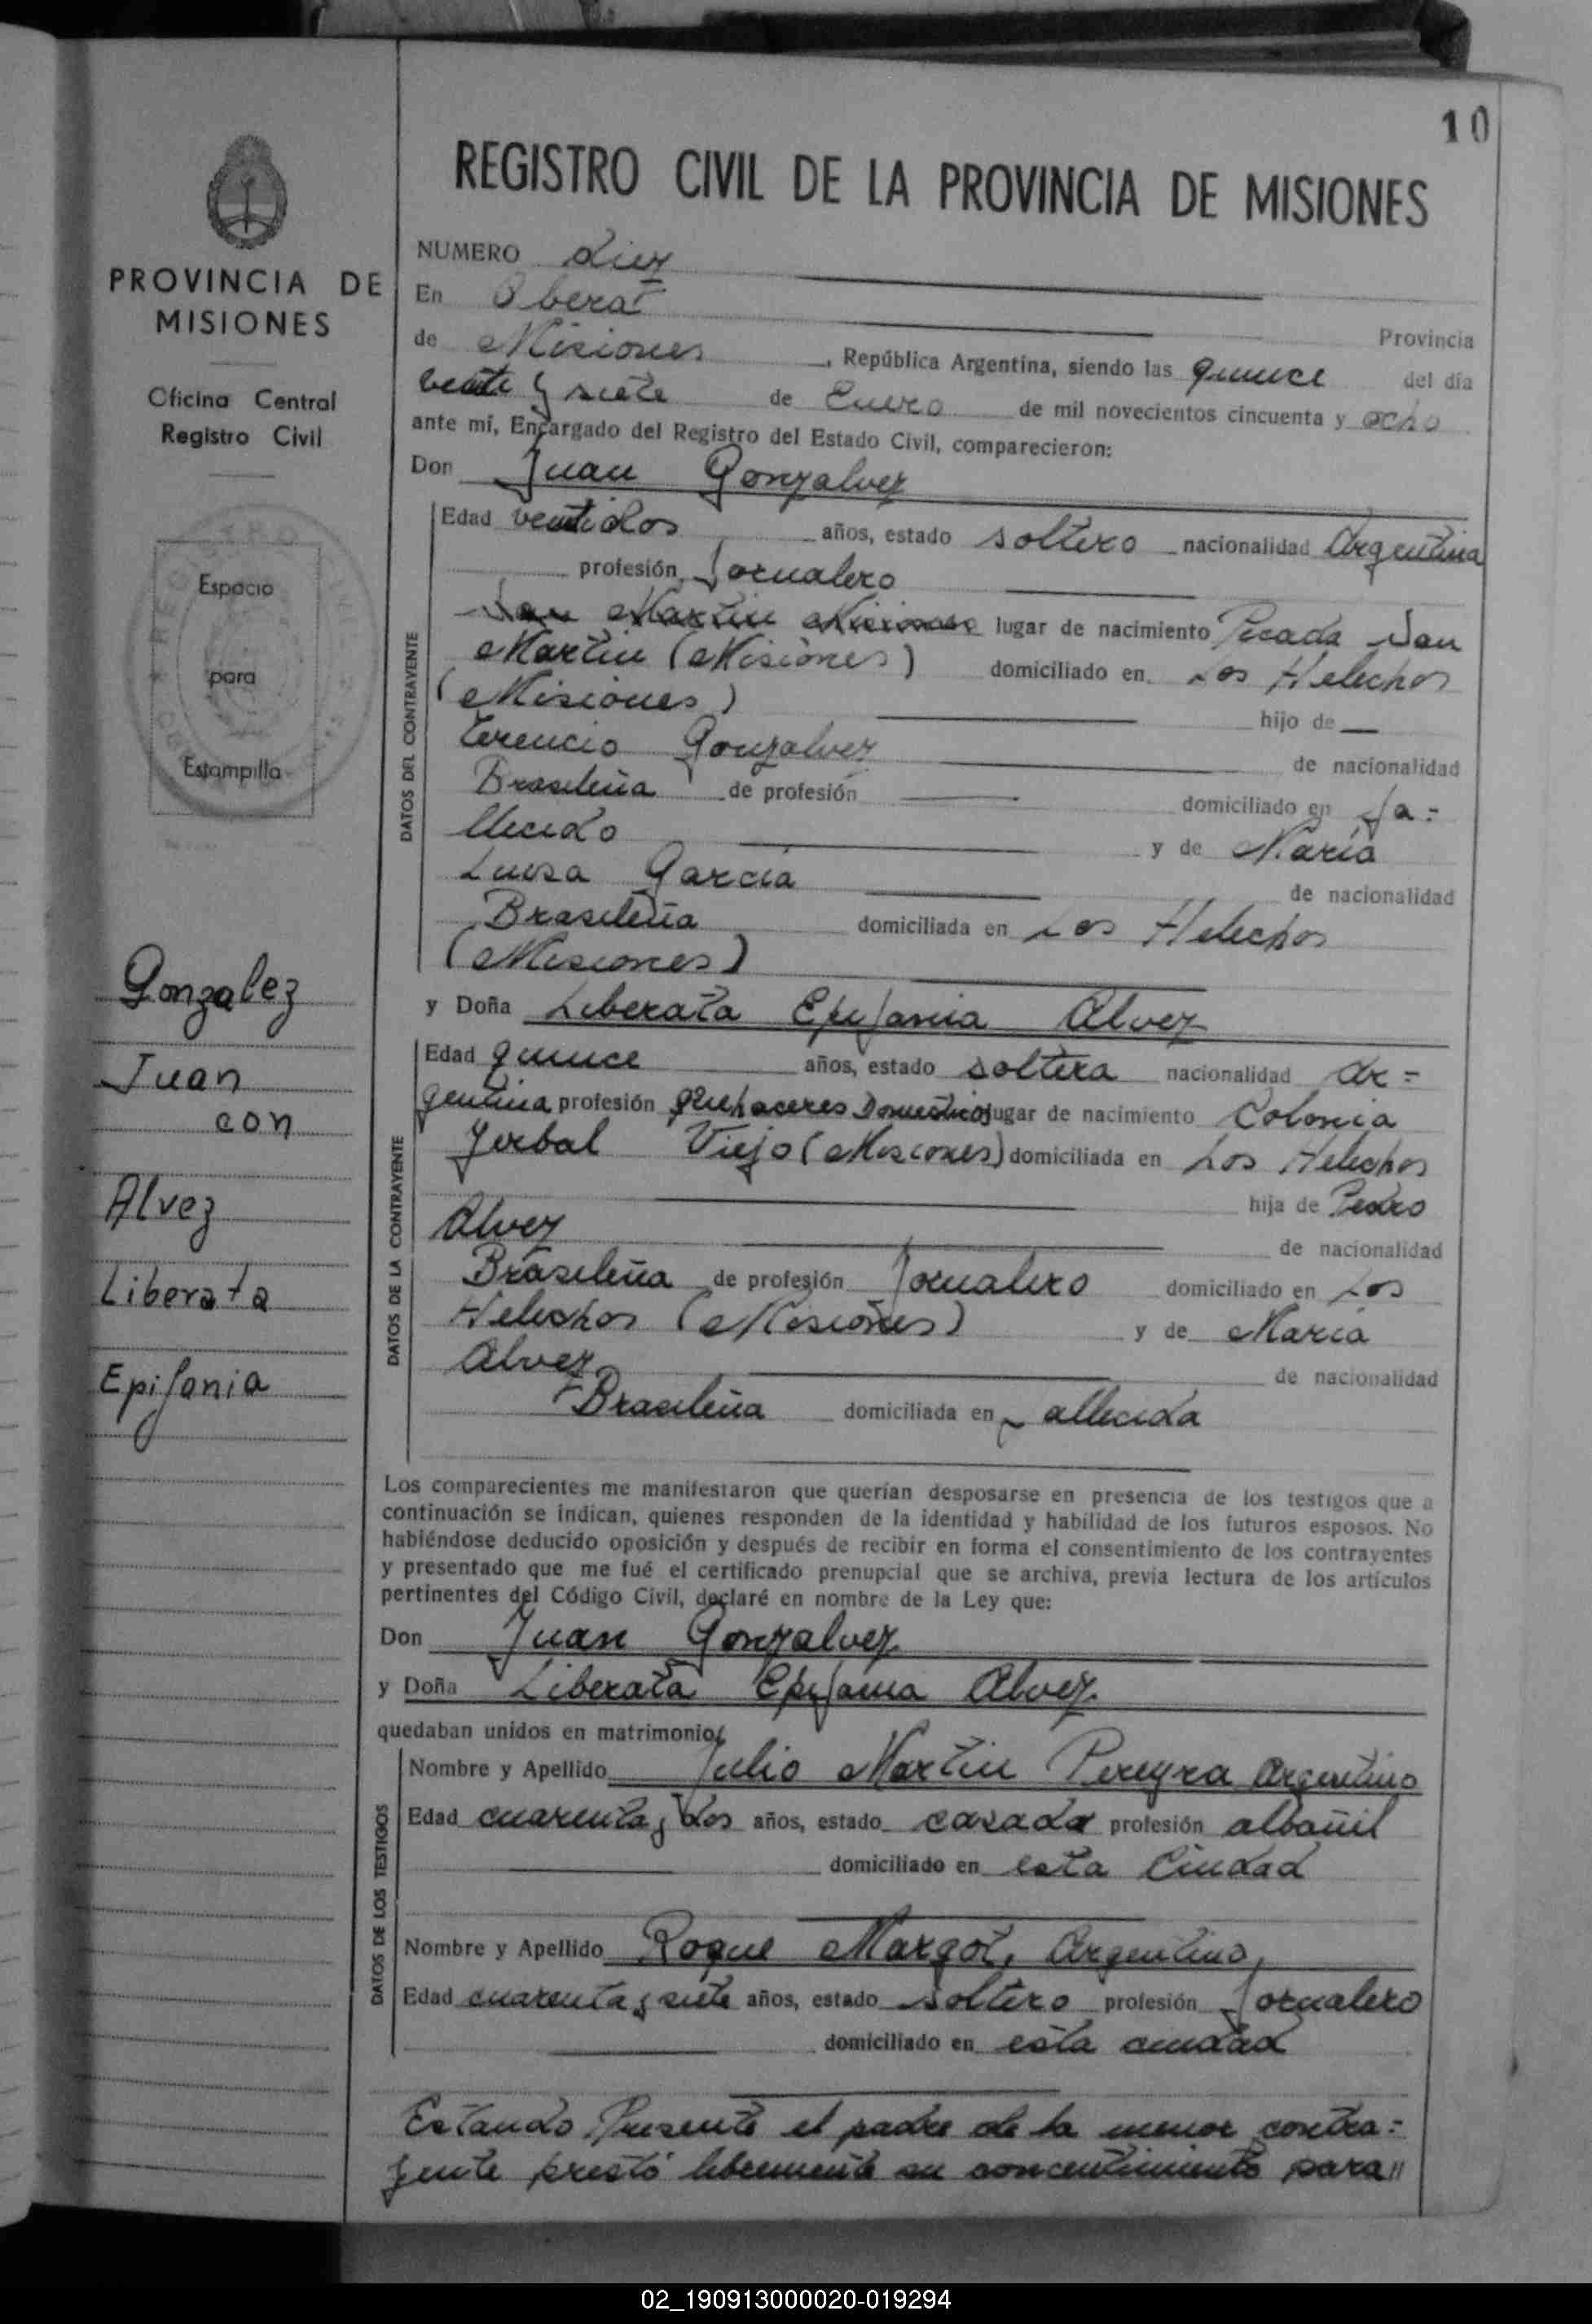 10
REGISTRO CIVIL DE LA PROVINCIA DE MISIONES
PROVINCIA DE
MISIONES
Oficina Central
Registro Civil
Espacio
para
Estampilla
Gonzalez
Juan
con
Alvez
Liberata
Epifania
NUMERO diez
En Oberá
Provincia
de Misiones, República Argentina, siendo las quince del día
veinte y siete de Enero de mil novecientos cincuenta y ocho
ante mí, Encargado del Registro del Estado Civil, comparecieron:
Don Juan Gonzalvez
DATOS DEL CONTRAYENTE
Edad ventidos años, estado soltero nacionalidad Argentina
profesión Jornalero
San Martin Misiones lugar de nacimiento Picada San
Martin (Misiones) domiciliado en Los Helechos
(Misiones) hijo de
Terencio Gonzalvez de nacionalidad
Brasileña de profesión domiciliado en Fa=
llecido y de María
Luisa García de nacionalidad
Brasileña domiciliada en Los Helechos
(Misiones)
y Doña Liberata Epifania Alvez
DATOS DE LA CONTRAYENTE
Edad quince años, estado soltera nacionalidad Ar=
gentina profesión Quehaceres Domesticos lugar de nacimiento Colonia
Yerbal Viejo (Misiones) domiciliada en Los Helechos
hija de Pedro
Alvez de nacionalidad
Brasileña de profesión Jornalero domiciliado en Los
Helechos (Misiones) y de María
Alvez de nacionalidad
Brasileña domiciliada en Fallecida
Los comparecientes me manifestaron que querían desposarse en presencia de los testigos que a
continuación se indican, quienes responden de la identidad y habilidad de los futuros esposos. No
habiéndose deducido oposición y después de recibir en forma el consentimiento de los contrayentes
y presentado que me fué el certificado prenupcial que se archiva, previa lectura de los artículos
pertinentes del Código Civil, declaré en nombre de la Ley que:
Don Juan Gonzalvez
y Doña Liberata Epifania Alvez.
quedaban unidos en matrimonio
DATOS DE LOS TESTIGOS
Nombre y Apellido Julio Martin Pereyra Argentino
Edad cuarenta y dos años, estado casado profesión albañil
domiciliado en esta Ciudad
Nombre y Apellido Roque Margot, Argentino,
Edad cuarenta y siete años, estado soltero profesión Jornalero
domiciliado en esta ciudad
Estando Presente el padre de la menor contra=
yente prestó libremente su concentimiento para"
02_190913000020-019294